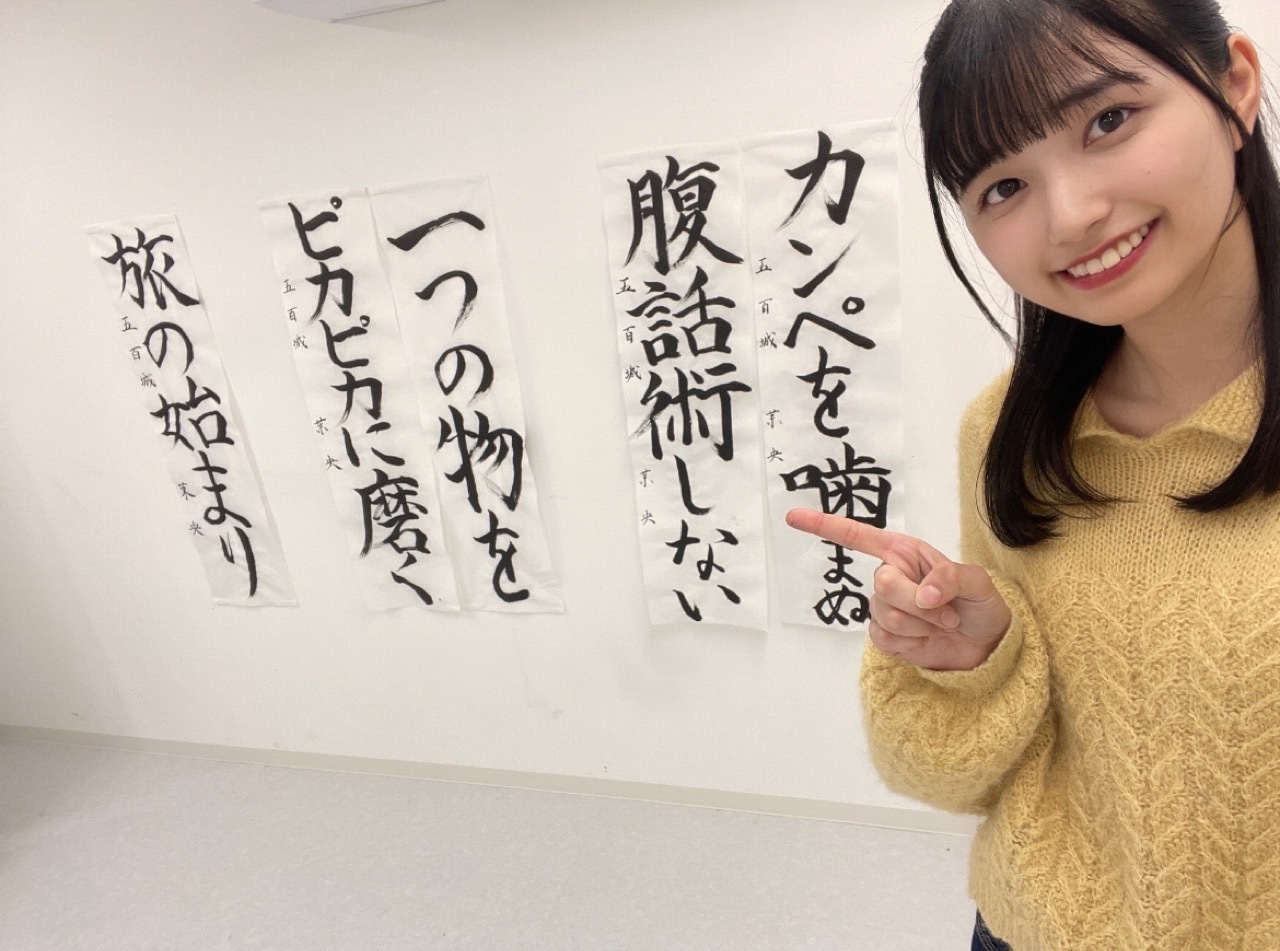 カンペを噛まぬ
五百城茉央
腹話術しない
五百城茉央
一つの物を
ピカピカに磨く
五百城茉央
旅の始まり
五百城茉央